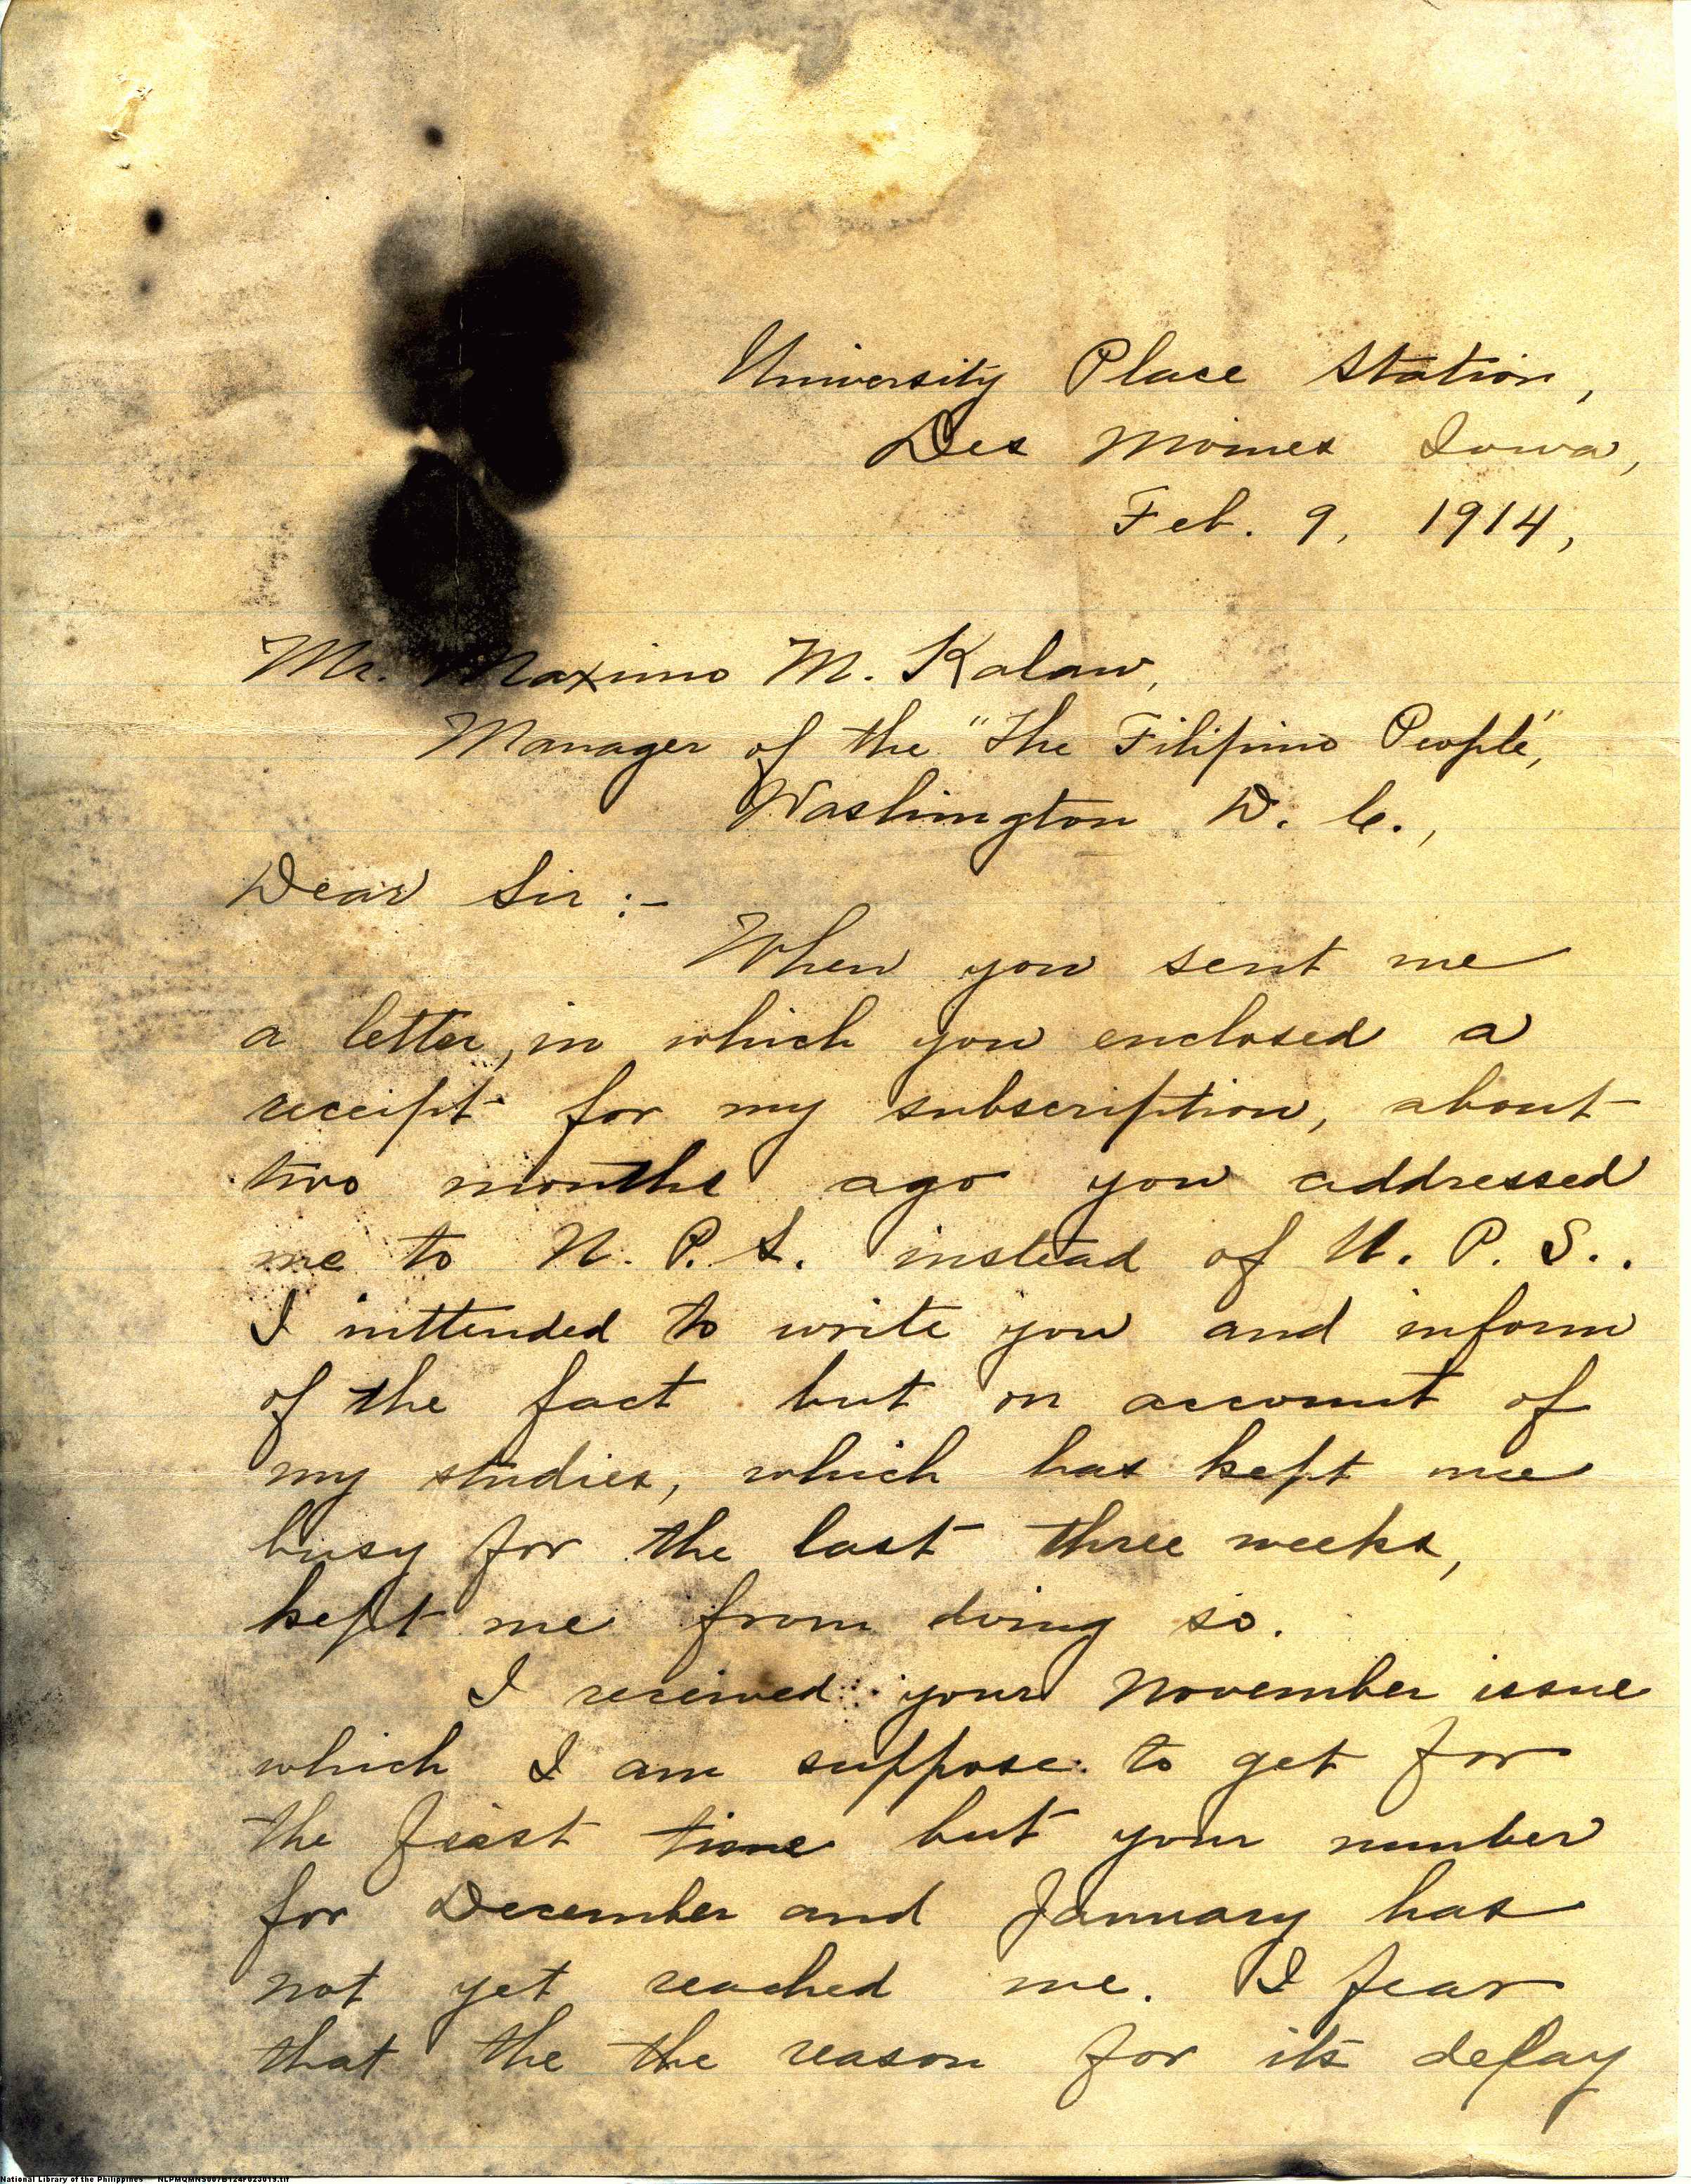 University Place Station,
Des Moines Iowa,
Feb. 9, 1914,
Mr. Maximo M. Kalaw,
Manager of the "The Filipino People",
Washington D. C.,
Dear Sir :-
When you sent me
a letter, in which you enclosed a
receipt for my subscription, about
two months ago you addressed
me to N. P. S. instead of U. P. S..
I inttended to write you and inform
of the fact but on account of
my studies, which has kept me
busy for the last three weeks,
kept me from doing so.
I received your November issue
which I am suppose to get for
the first time but your number
for December and January has
not yet reached me. I fear
that the the reason for its delay
National Library of the Philippines